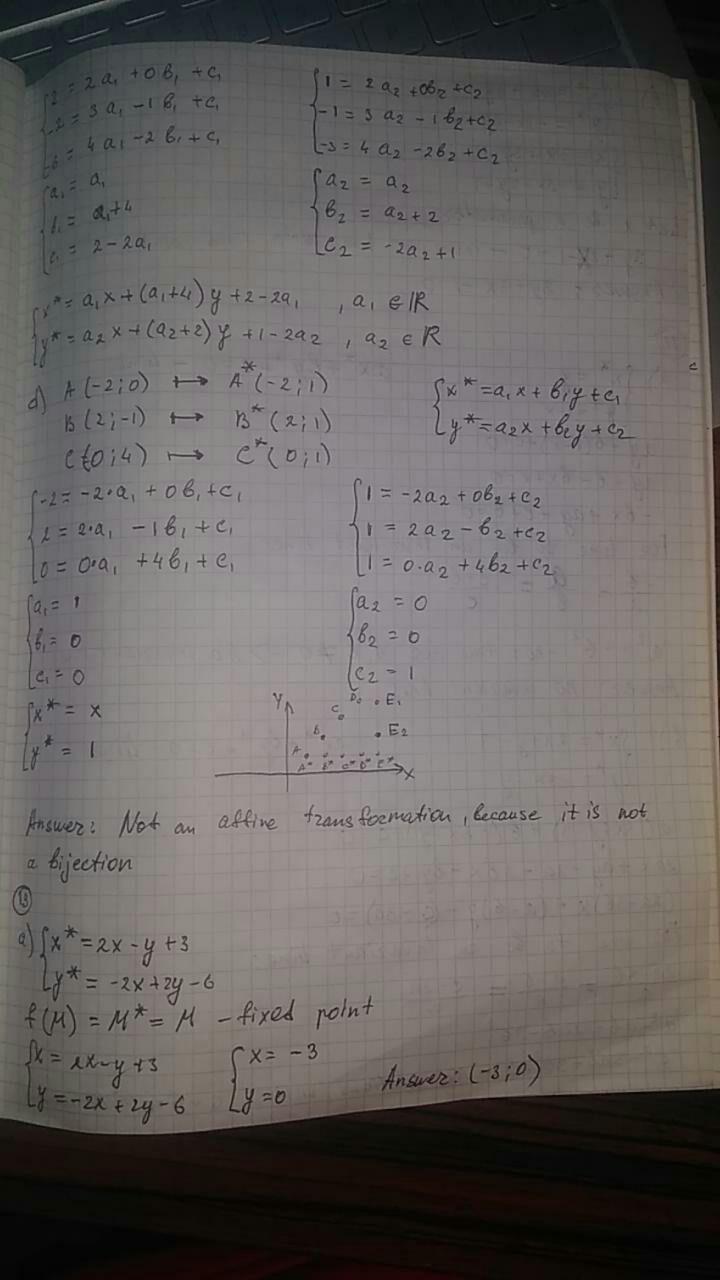 2 = 2a₁ + 0b₁ + c₁
-2 = 3a₁ - 1b₁ + c₁
= 4a₁ - 2b₁ + c₁
1 = 2a₂ + 0b₂ + c₂
-1 = 3a₂ - 1b₂ + c₂
-3 = 4a₂ - 2b₂ + c₂
a₁ = a₁
b₁ = a₁+4
c₁ = 2-2a₁
a₂ = a₂
b₂ = a₂+2
c₂ = -2a₂+1
x* = a₁x + (a₁+4)y + 2-2a₁ , a₁ ∈ ℝ
y* = a₂x + (a₂+2)y + 1-2a₂ , a₂ ∈ ℝ
d) A(-2;0) ↦ A*(-2;1)
B(2;-1) ↦ B*(2;1)
C(0;4) ↦ C*(0;1)
x* = a₁x + b₁y + c₁
y* = a₂x + b₂y + c₂
-2 = -2·a₁ + 0b₁ + c₁
2 = 2·a₁ - 1b₁ + c₁
0 = 0·a₁ + 4b₁ + c₁
1 = -2a₂ + 0b₂ + c₂
1 = 2a₂ - b₂ + c₂
1 = 0·a₂ + 4b₂ + c₂
a₁ = 1
b₁ = 0
c₁ = 0
a₂ = 0
b₂ = 0
c₂ = 1
x* = x
y* = 1
Y
C D E₁
B E₂
A
A* B* C* D* E*
X
Answer: Not an affine transformation, because it is not
a bijection
a) x* = 2x - y + 3
y* = -2x + 2y - 6
f(M) = M* = M - fixed point
x = 2x - y + 3
y = -2x + 2y - 6
x = -3
y = 0
Answer: (-3;0)